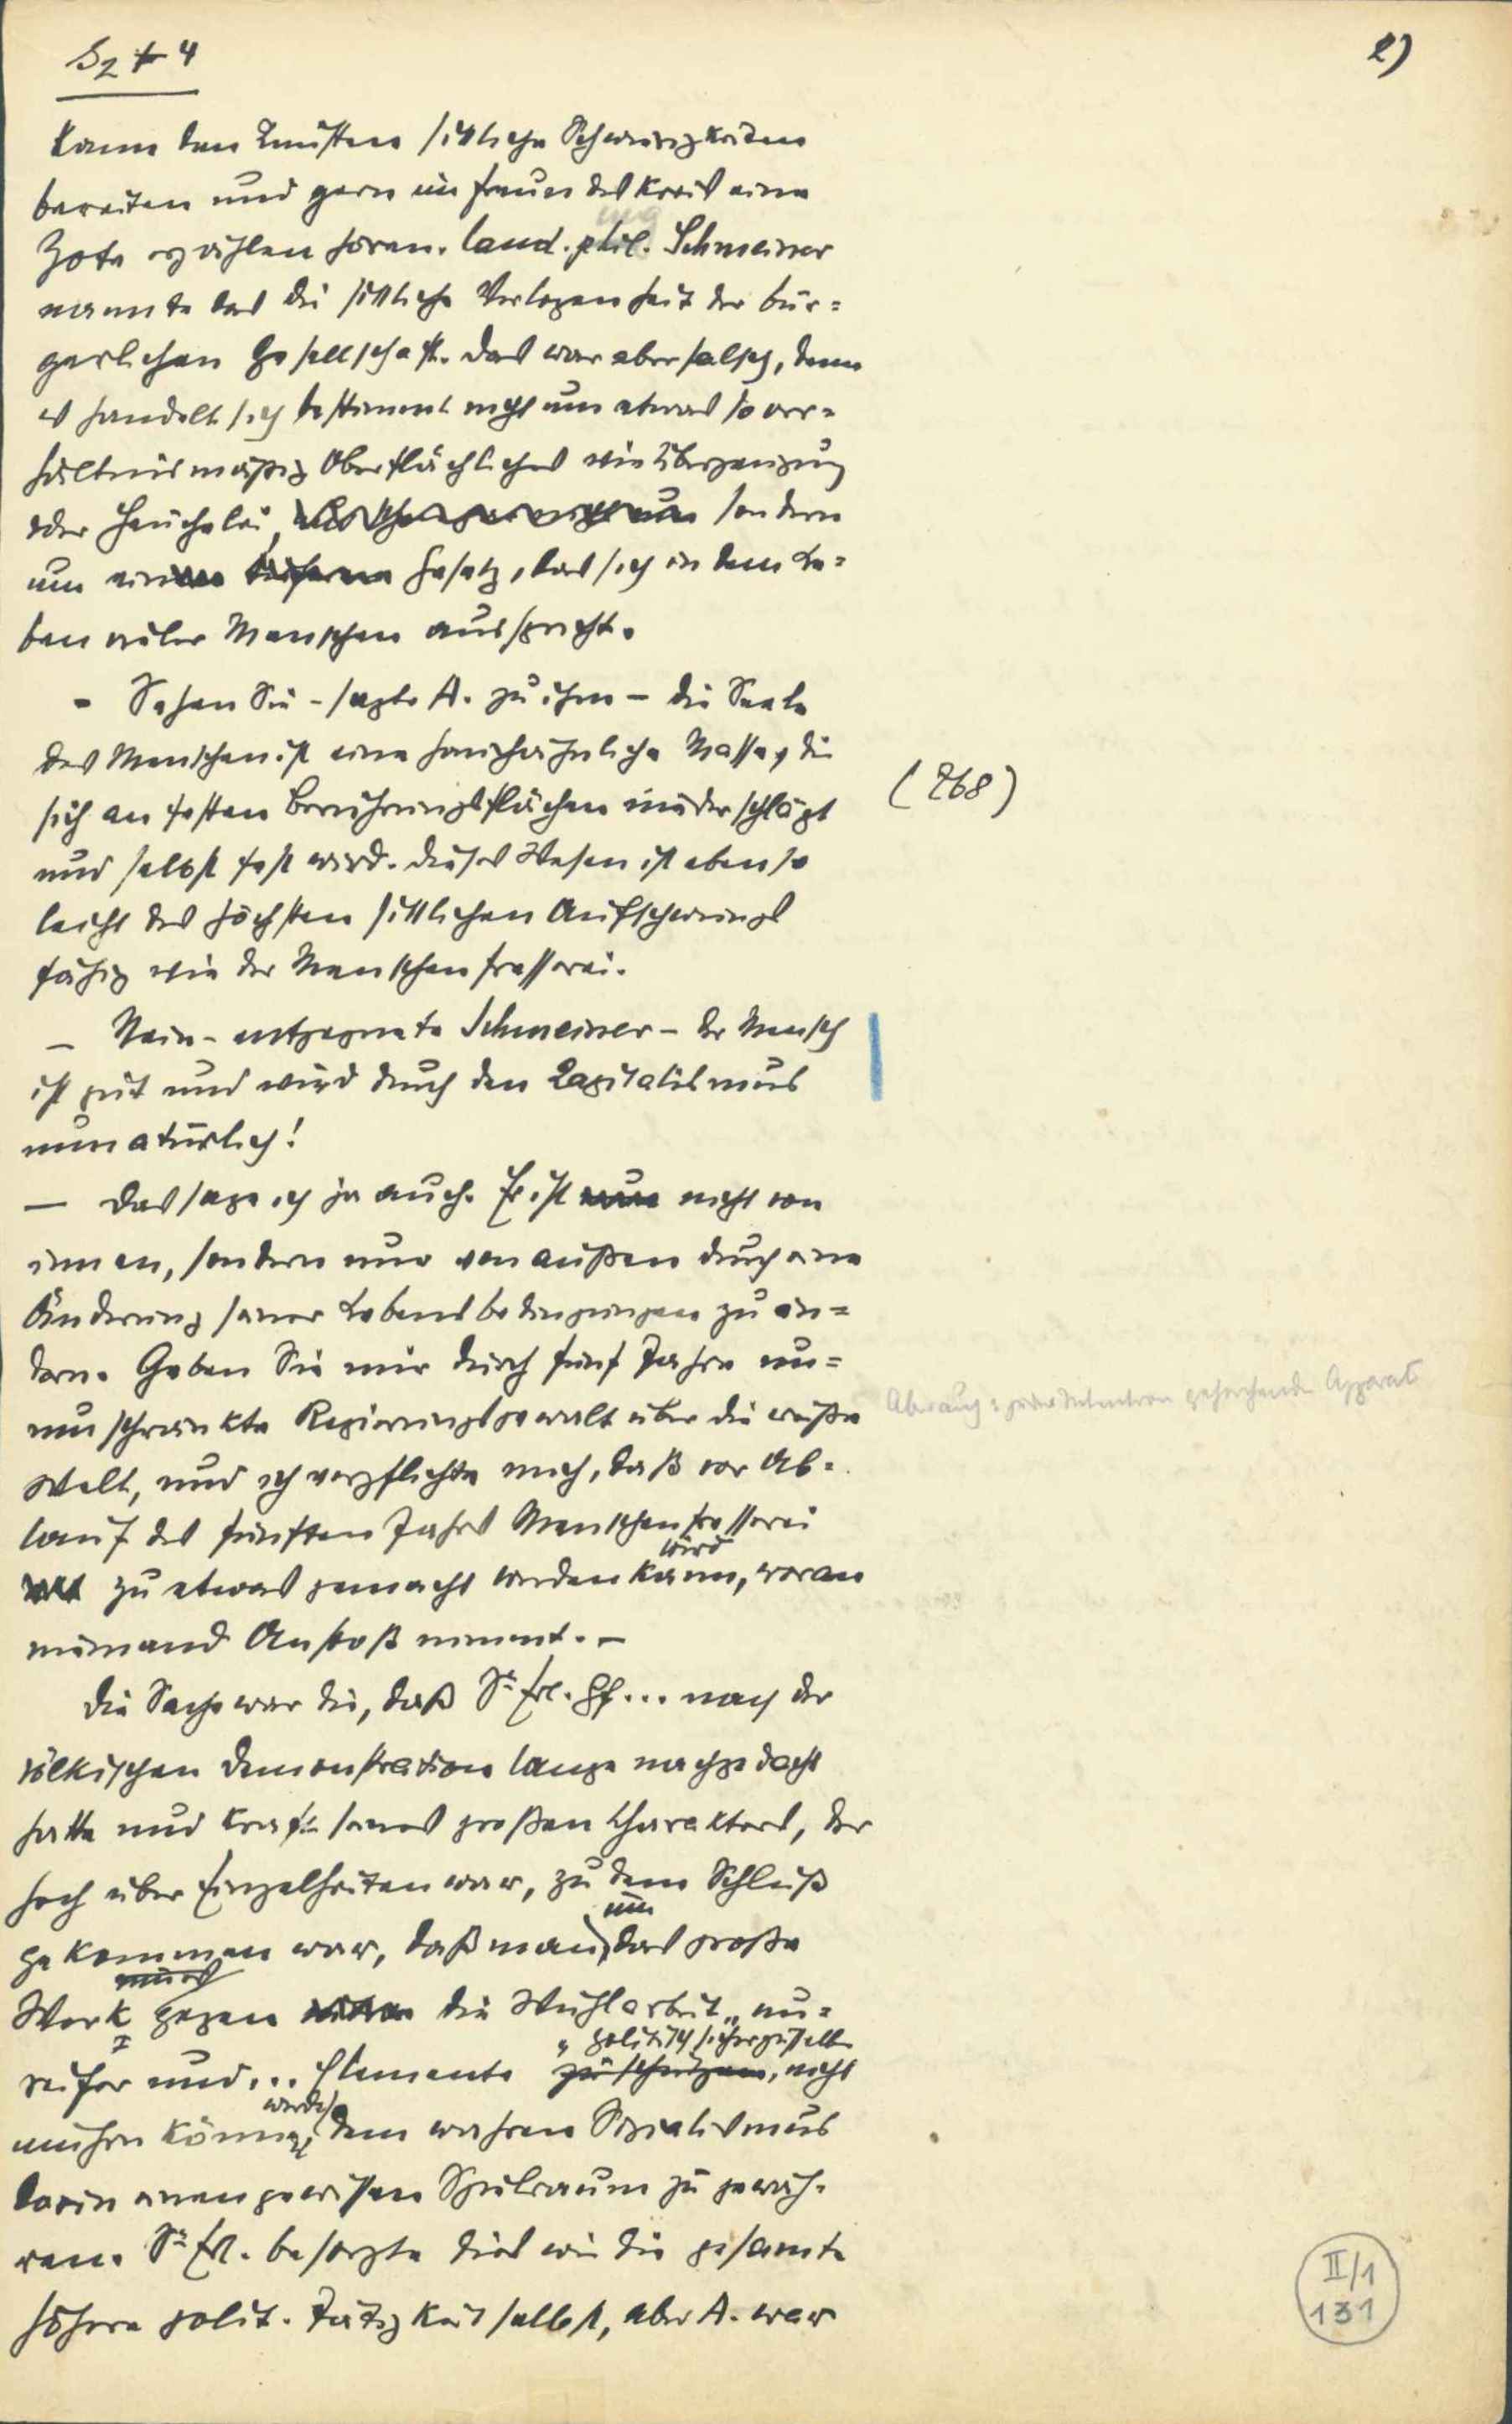 s2 + 4
2)
kann den Ernsten sittliche Schwierigkeiten
bereiten und gern im Freundeskreis eine
Zote erzählen hören. Cand. phil. Schmeisser
nannte das die sittliche Verlogenheit der bür=
gerlichen Gesellschaft. Das war aber falsch, denn
es handelt sich bestimmt nicht um etwas so ver=
hältnismäßig Oberflächliches wie Überzeugung
oder Heuchelei, sondern
um ein Gesetz, das sich in dem Le=
ben vieler Menschen ausspricht.
- Sehen Sie - sagte A. zu ihm - die Seele
des Menschen ist eine hauchähnliche Masse, die
sich an festen Berührungsflächen niederschlägt
(268)
und selbst fest wird. Dieses Wesen ist ebenso
leicht des höchsten sittlichen Aufschwungs
fähig wie der Menschenfresserei.
— Nein - entgegnete Schmeisser - der Mensch
ist gut und wird durch den Kapitalismus
unnatürlich!
— Das sage ich ja auch. Er ist nicht von
innen, sondern nur von außen durch eine
Änderung seiner Lebensbedingungen zu än=
dern. Geben Sie mir durch fünf Jahre un=
umschränkte Regierungsgewalt über die weiße
gehorchende Apparat
Welt, und ich verpflichte mich, daß vor Ab=
lauf des fünften Jahres Menschenfresserei
wird
zu etwas gemacht werden kann, woran
niemand Anstoß nimmt. —
Die Sache war die, daß Se Erl. Gf... nach der
völkischen Demonstration lange nachgedacht
hatte und kraft seines großen Charakters, der
hoch über Einzelheiten war, zu dem Schluß
um
gekommen war, daß man, das große
Werk gegen die Wühlarbeit „un=
politisch sicherzustellen
reifer und... Elemente zu schützen, nicht
werde
umhin könne, dem wahren Sozialismus
darin einen gewissen Spielraum zu gewäh=
ren. Se Erl. besorgte dies wie die gesamte
höhere polit. Tätigkeit selbst, aber A. war
II/1
131